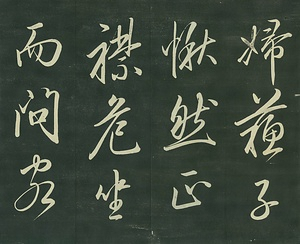 婦蘓子
愀然正
襟危坐
而問客